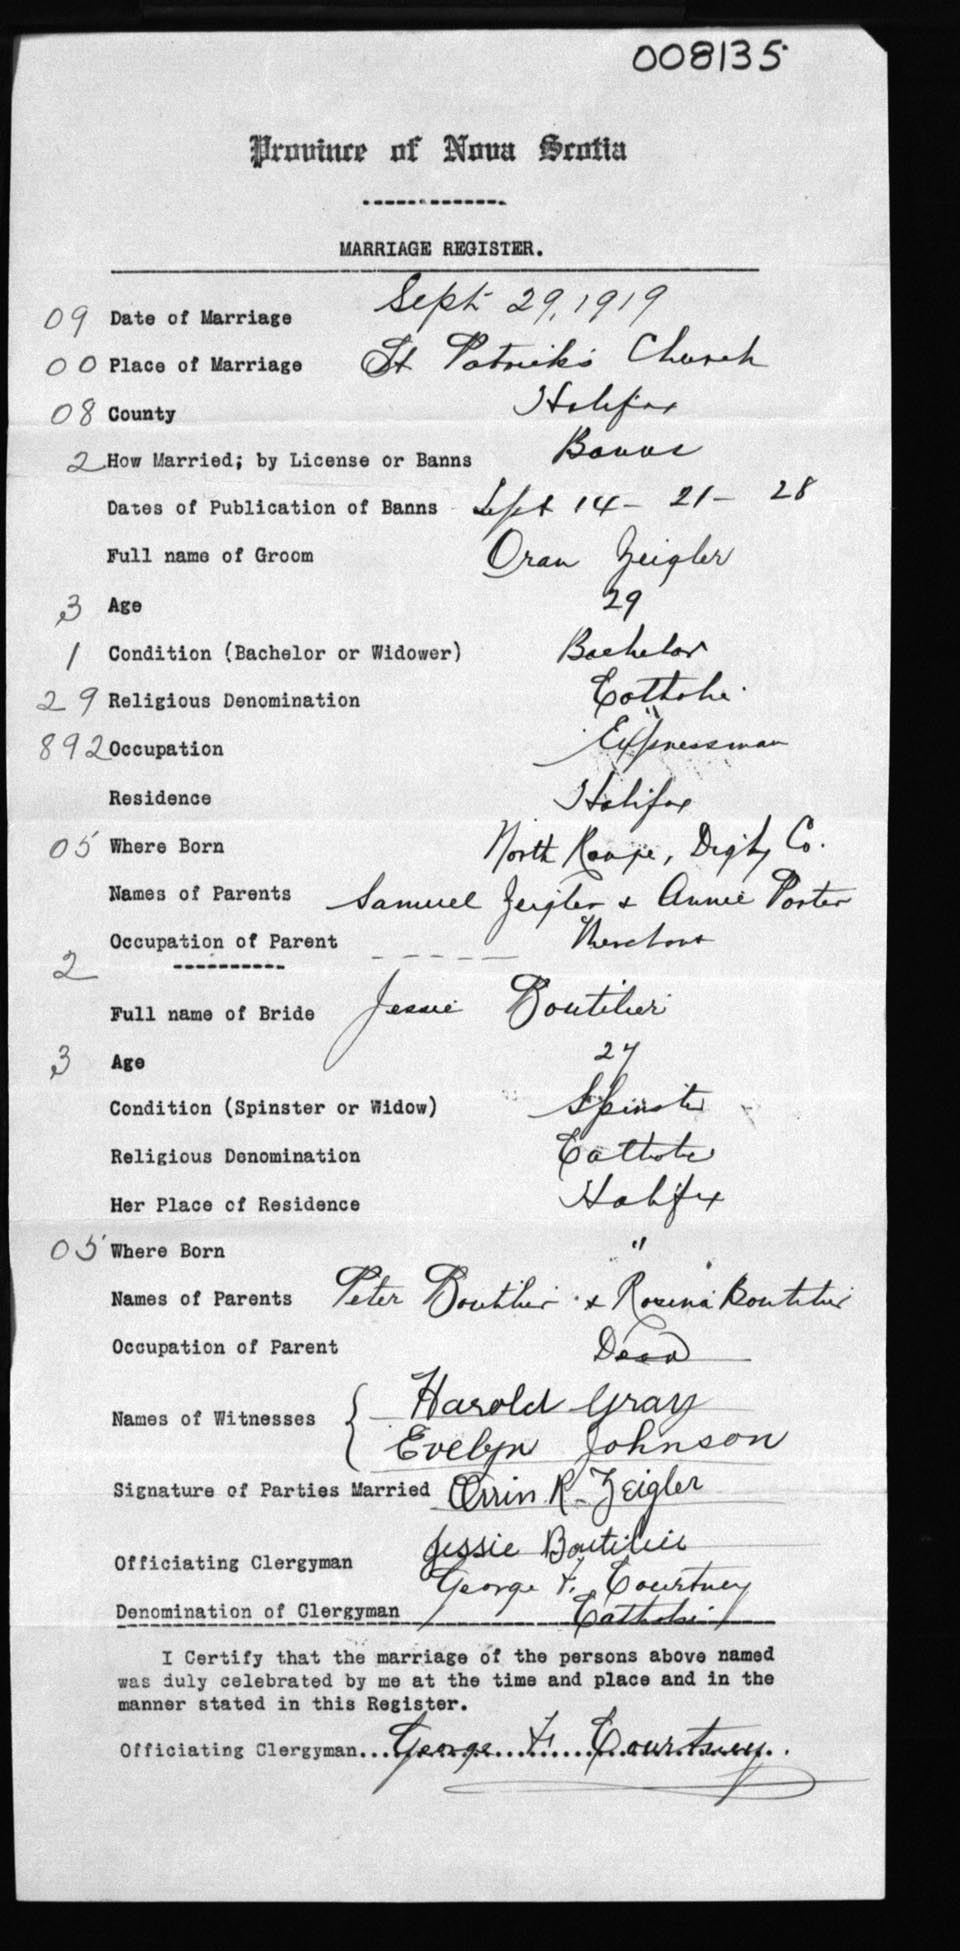 008135
Province of Nova Scotia
MARRIAGE REGISTER.
09 Date of Marriage Sept 29, 1919
00 Place of Marriage St Patrick's Church
08 County Halifax
2 How Married; by License or Banns Banns
Dates of Publication of Banns Sept 14 - 21 - 28
Full name of Groom Oran Zeigler
3 Age 29
1 Condition (Bachelor or Widower) Bachelor
29 Religious Denomination Catholic
892 Occupation Expressman
Residence Halifax
05 Where Born North Range, Digby Co.
Names of Parents Samuel Zeigler & Annie Porter
Occupation of Parent Merchant
2
Full name of Bride Jessie Boutilier
3 Age 27
Condition (Spinster or Widow) Spinster
Religious Denomination Catholic
Her Place of Residence Halifax
05 Where Born "
Names of Parents Peter Boutilier & Rosena Boutilier
Occupation of Parent Dead
Names of Witnesses { Harold Gray
Evelyn Johnson
Signature of Parties Married Orrin R. Zeigler
Jessie Boutilier
Officiating Clergyman George F. Courtney
Denomination of Clergyman Catholic
I Certify that the marriage of the persons above named
was duly celebrated by me at the time and place and in the
manner stated in this Register.
Officiating Clergyman... George F. Courtney